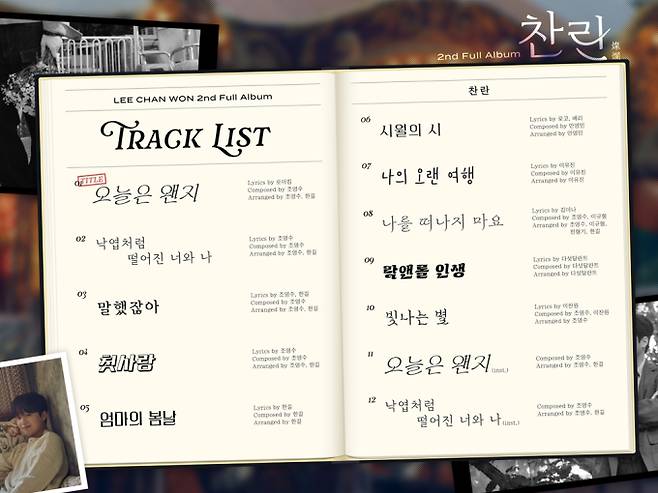 2nd Full Album 찬란 燦爛
LEE CHAN WON 2nd Full Album
TRACK LIST
01 TITLE
오늘은 왠지
Lyrics by 로이킴
Composed by 조영수
Arranged by 조영수, 한길
02 낙엽처럼
떨어진 너와 나
Lyrics by 조영수
Composed by 조영수
Arranged by 조영수, 한길
03 말했잖아
Lyrics by 조영수, 한길
Composed by 조영수
Arranged by 조영수, 한길
04 첫사랑
Lyrics by 조영수
Composed by 조영수
Arranged by 조영수, 한길
05 엄마의 봄날
Lyrics by 한길
Composed by 한길
Arranged by 한길
찬란
06 시월의 시
Lyrics by 로고, 베리
Composed by 안영민
Arranged by 안영민
07 나의 오랜 여행
Lyrics by 이유진
Composed by 이유진
Arranged by 이유진
08 나를 떠나지 마요
Lyrics by 김이나
Composed by 조영수, 이규형
Arranged by 조영수, 이규형,
한길
09 락앤롤 인생
Lyrics by 다섯달란트
Composed by 다섯달란트
Arranged by 다섯달란트
10 빛나는 별
Lyrics by 이찬원
Composed by 조영수, 이찬원
Arranged by 조영수
11 오늘은 왠지 (inst.)
Composed by 조영수
Arranged by 조영수, 한길
12 낙엽처럼
떨어진 너와 나 (inst.)
Composed by 조영수
Arranged by 조영수, 한길